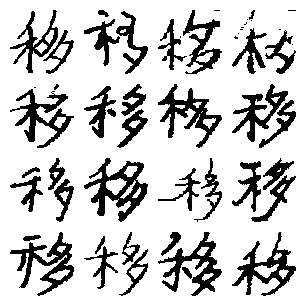 移移移
移移移移
移移移移
移移移移